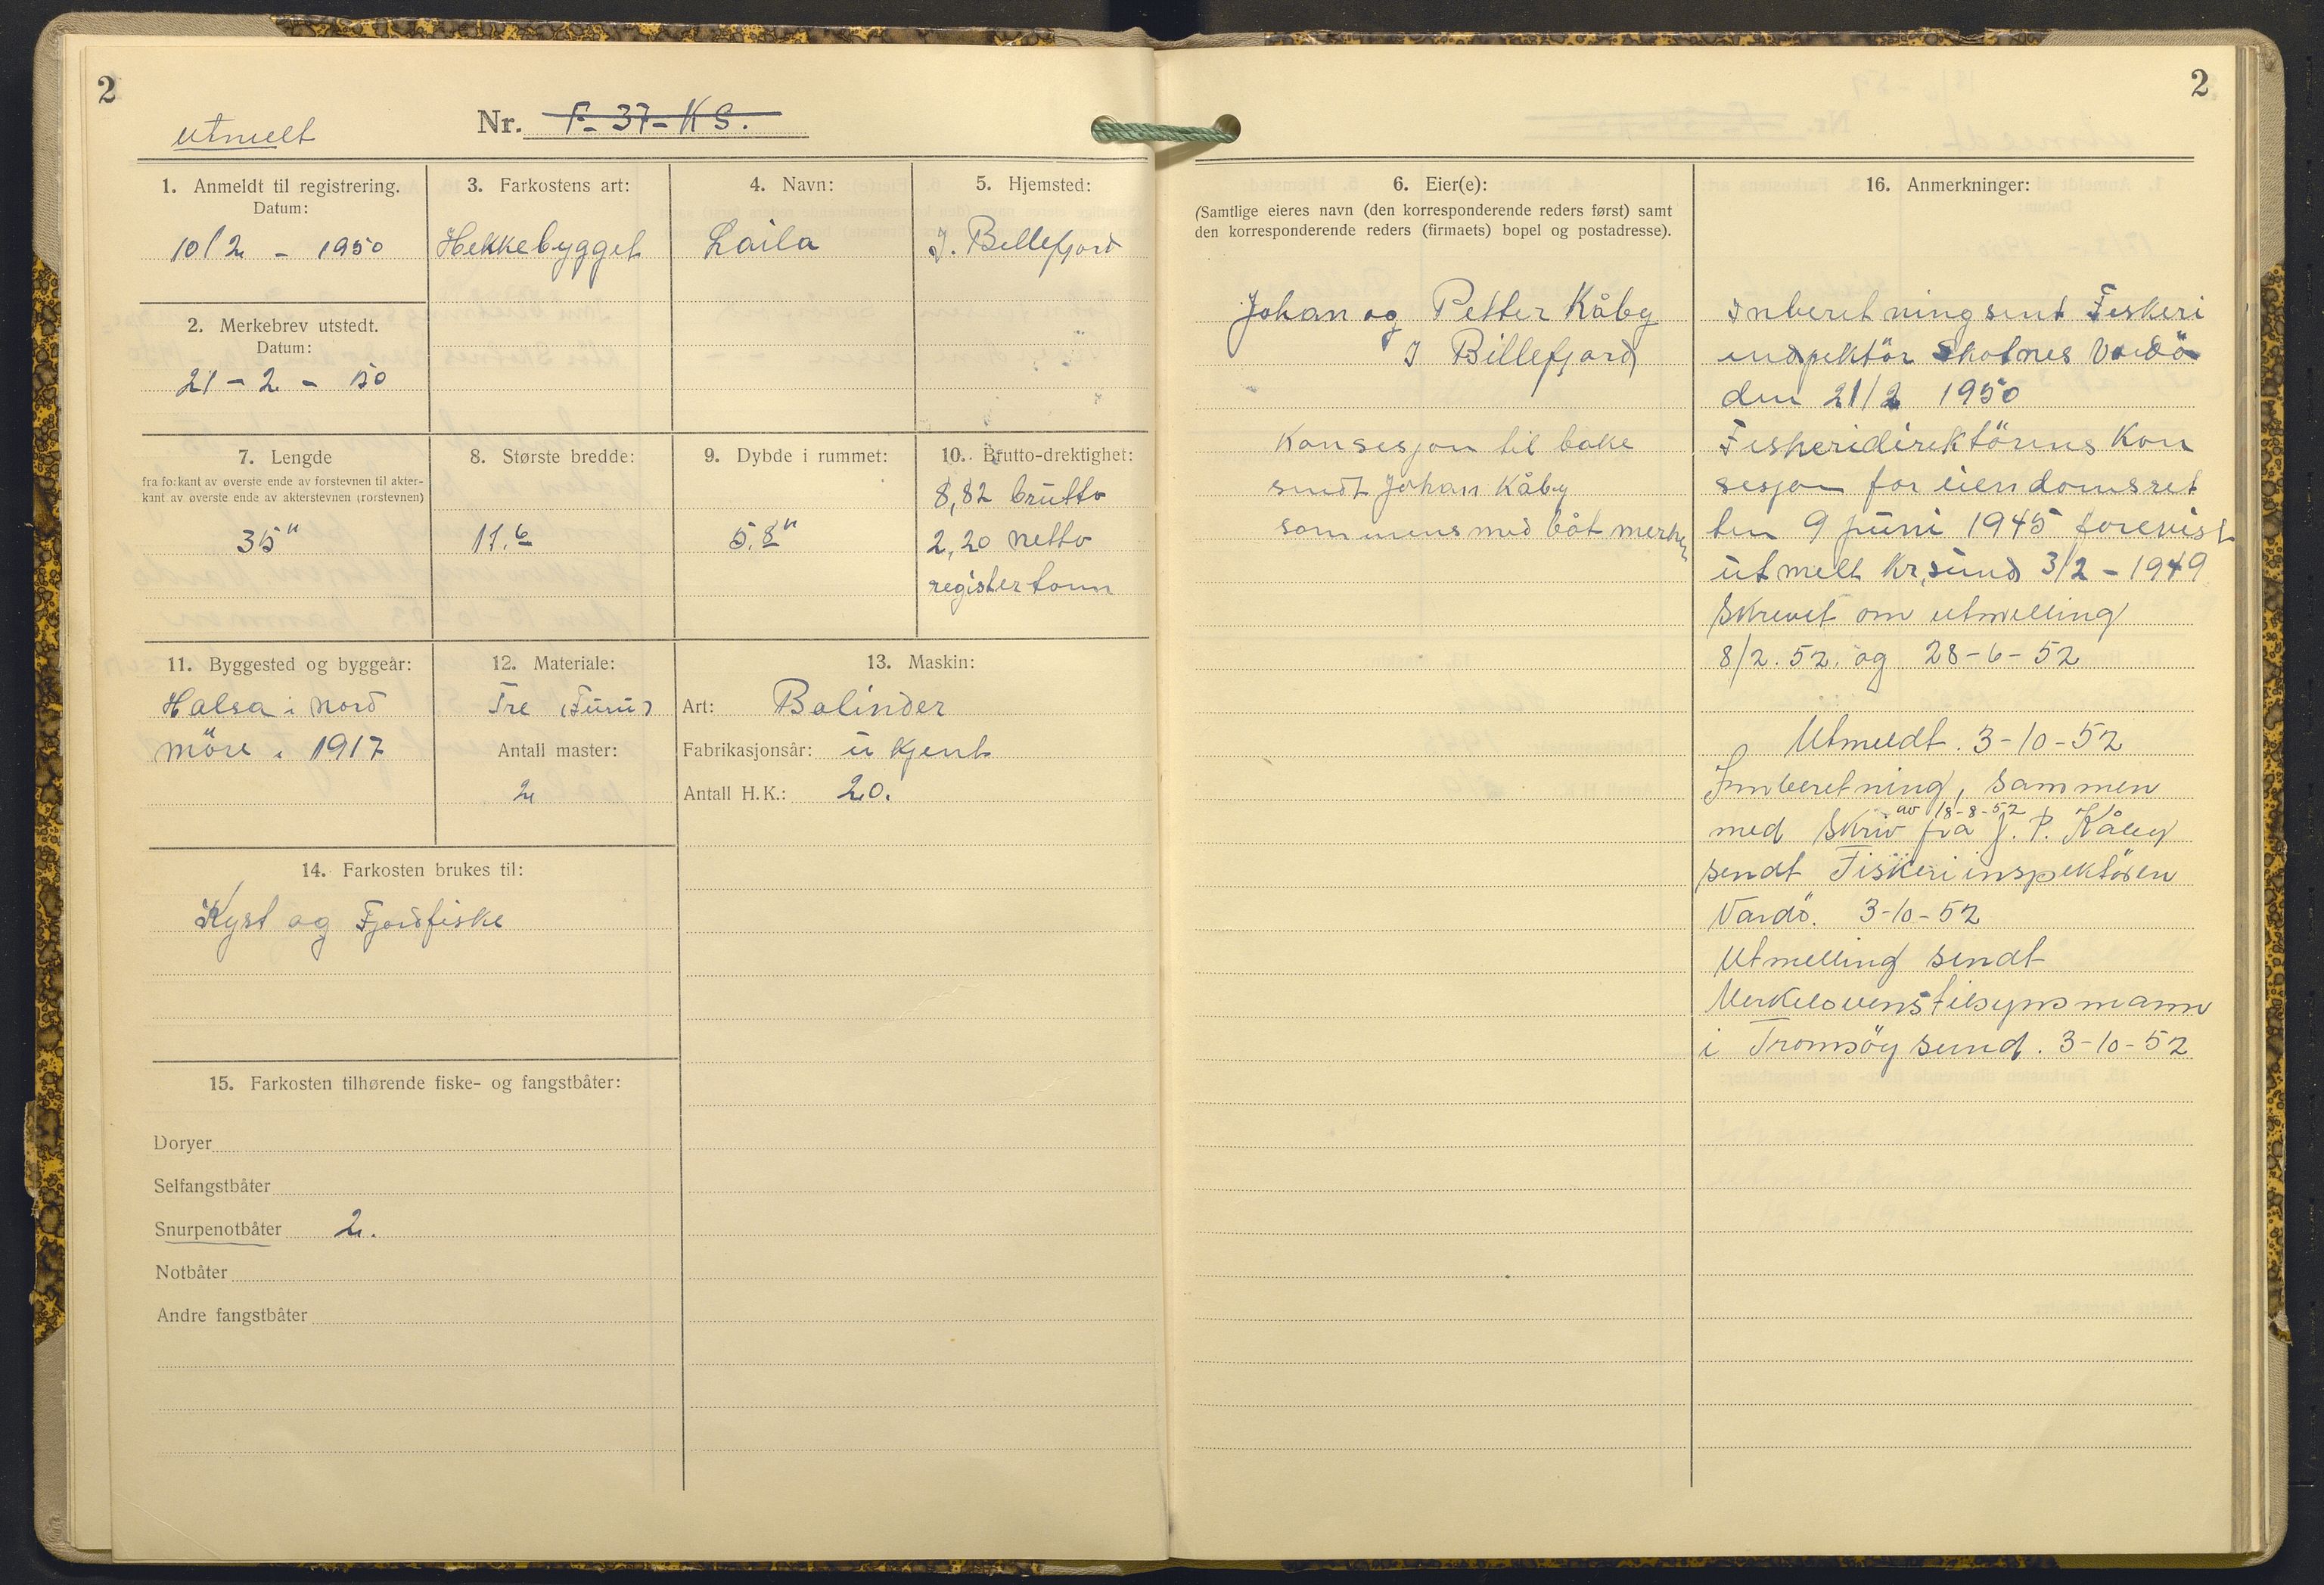 2
utmelt
Nr. F-37-KS.
1. Anmeldt til registrering.
Datum:
10/2 - 1950
2. Merkebrev utstedt.
Datum:
21-2-50
3. Farkostens art:
Hekkebygget
4. Navn:
Laila
5. Hjemsted:
I. Billefjord
7. Lengde
fra forkant av øverste ende av forstevnen til akter-
kant av øverste ende av akterstevnen (rorstevnen)
35"
8. Største bredde:
11.6
9. Dybde i rummet:
5.8"
10. Brutto-drektighet:
8,82 brutto
2,20 netto
registertonn
11. Byggested og byggeår:
Halsa i nord
möre. 1917
12. Materiale:
Tre (Furu)
Antall master:
2
13. Maskin:
Art: Bolinder
Fabrikasjonsår: ukjent
Antall H.K.: 20.
14. Farkosten brukes til:
Kyst og Fjordfiske
15. Farkosten tilhørende fiske- og fangstbåter:
Doryer
Selfangstbåter
Snurpenotbåter 2.
Notbåter
Andre fangstbåter
2
6. Eier(e):
(Samtlige eieres navn (den korresponderende reders først) samt
den korresponderende reders (firmaets) bopel og postadresse).
Johan og Petter Kåby
I Billefjord
Konsesjon til bake
sendt Johan Kåby
sammens med båt merker
16. Anmerkninger:
Inberetning sent Fiskeri
inspektör Skotnes Vardö
den 21/2 1950
Fiskeridirektörens Kon
sesjon for eiendomsret
ten 9 juni 1945 forevist
utmelt Kr,sund 3/2 - 1949
Skrevet om utmelling
8/2. 52. og 28-6-52
Utmeldt. 3-10-52
Innberetning, sammen
av 18-8-52
med skriv fra J. P. Kåby
sendt Fiskeriinspektören
Vardö. 3-10-52
Utmelling sendt
Merkelovens tilsynsmann
i Tromsöysund. 3-10-52